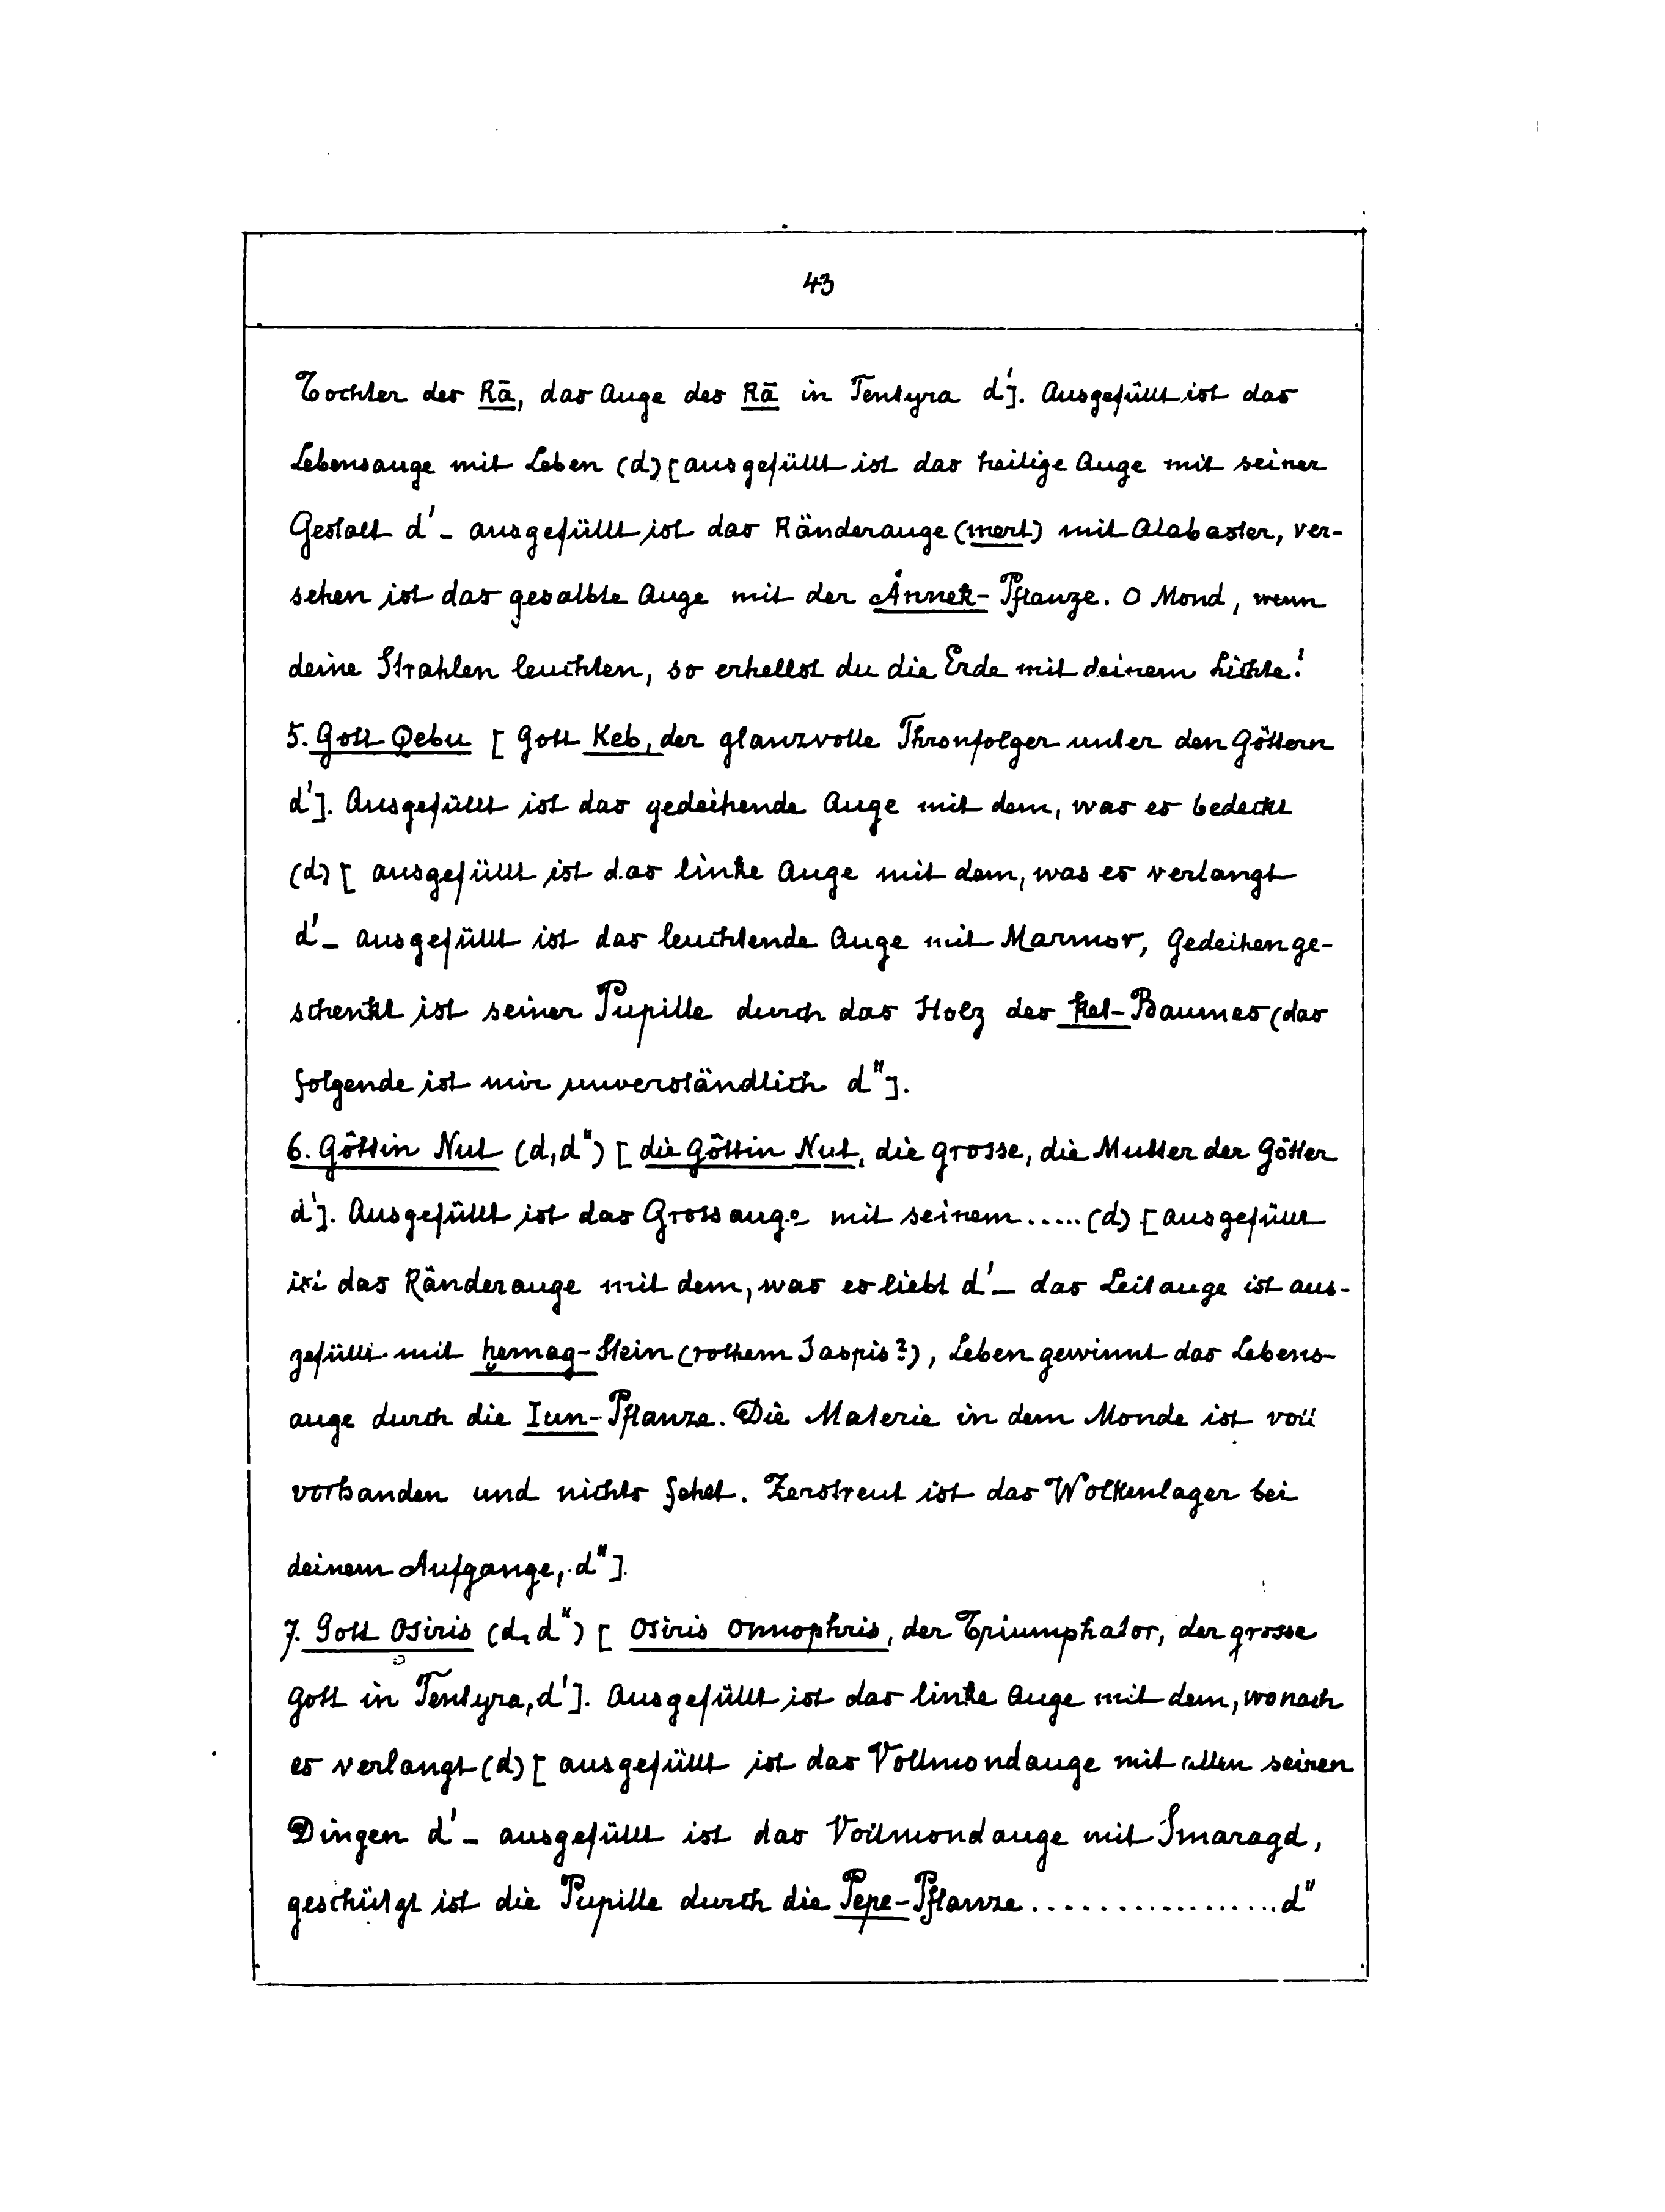 43
Tochter des Rā, das Auge des Rā in Tentyra d']. Ausgefüllt ist das
Lebensauge mit Leben (d) [ausgefüllt ist das heilige Auge mit seiner
Gestalt d' – ausgefüllt ist das Ränderauge (mert) mit Alabaster, ver-
sehen ist das gesalbte Auge mit der Ȧnnek-Pflanze. O Mond, wenn
deine Strahlen leuchten, so erhellst du die Erde mit deinem Lichte!
5. Gott Qebu [Gott Keb, der glanzvolle Thronfolger unter den Göttern
d']. Ausgefüllt ist das gedeihende Auge mit dem, was es bedeckt
(d) [ausgefüllt ist das linke Auge mit dem, was es verlangt
d' – ausgefüllt ist das leuchtende Auge mit Marmor, Gedeihen ge-
schenkt ist seiner Pupille durch das Holz des ket-Baumes (das
folgende ist mir unverständlich d"].
6. Göttin Nut (d, d") [die Göttin Nut, die grosse, die Mutter der Götter
d']. Ausgefüllt ist das Grossauge mit seinem ..... (d) [ausgefüllt
ist das Ränderauge mit dem, was es liebt d' – das Leitauge ist aus-
gefüllt mit ḫemag-Stein (rothem Jaspis?), Leben gewinnt das Lebens-
auge durch die Iun-Pflanze. Die Materie in dem Monde ist voll
vorhanden und nichts fehlt. Zerstreut ist das Wolkenlager bei
deinem Aufgange, d"]
7. Gott Osiris (d, d") [Osiris Onnophris, der Triumphator, der grosse
Gott in Tentyra, d']. Ausgefüllt ist das linke Auge mit dem, wonach
es verlangt (d) [ausgefüllt ist das Vollmondauge mit allen seinen
Dingen d' – ausgefüllt ist das Vollmondauge mit Smaragd,
geschützt ist die Pupille durch die Pepe-Pflanze ................. d"